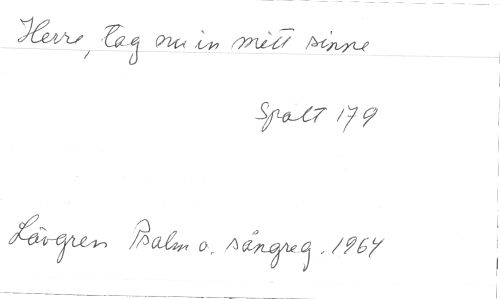 Herre, tag nu in mitt sinne
Spalt 179
Lövgren Psalm o. sångreg. 1964